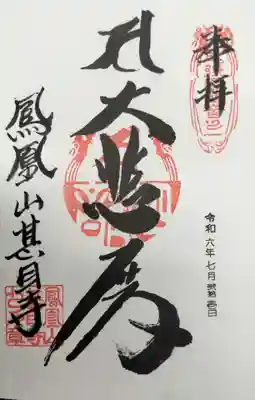 奉拝
令和六年七月弐拾壱日
大悲殿
鳳凰山甚目寺